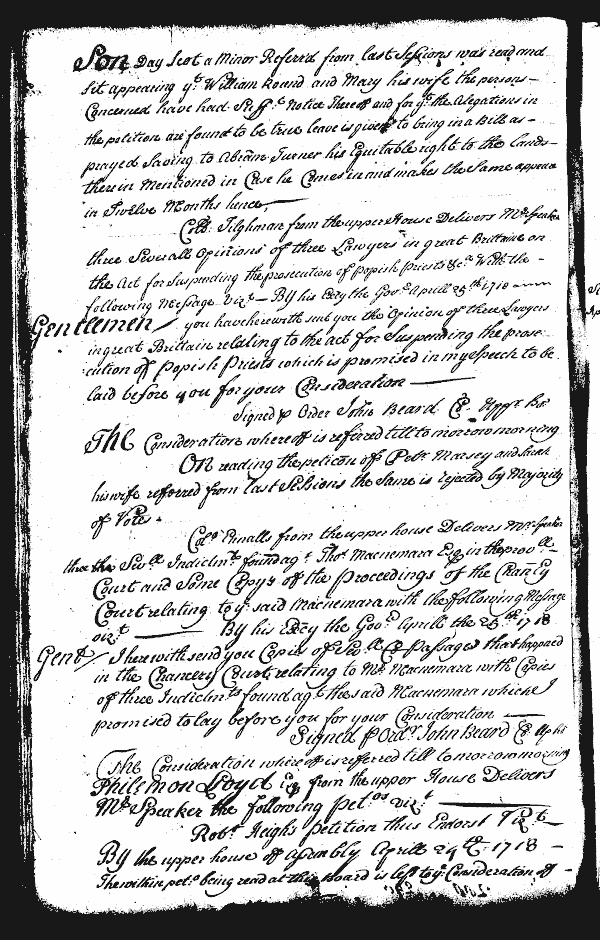 Son Day Scot a Minor Referrd from last Sessions was read and
sit appearing yt William Round and Mary his wife the persons
Concerned have had Suff.t Notice Thereof and for yt the Alegations in
the petition are found to be true leave is given to bring in a Bill as
prayed Saving to Abram Turner his Equitable right to the lands
therein Mentioned in Case he Comes in and makes the Same appear
in Twelve Months hence,
Coll. Tilghman from the upper House Delivers Mr Speaker
three Severall Opinions of three Lawyers in great Brittaine on
the Act for Suspending the prosecution of Popish Priests &c.a With the
following Message Viz.t By his Excy the Gov.r Aprill 25th 1718
Gentlemen / you have herewith sent you the Opinion of three Lawyers
in great Brittain relating to the act for Suspending the prose
cution off Popish Priests which is promised in my Speech to be
laid before you for your Consideration
Signed p Order John Beard Cl. Upp.r Ho.
The Consideration whereoff is referred till to morrow morning
On reading the peticon off Rob.t Marsey and
his wife referred from last Sessions the Same is rejected by Majority
of Votes.
Col.o Ennalls from the upper house Delivers Mr Speaker
three the Sev.ll Indictm.ts found ag.t Tho.s Macnemara Esq in the prov.ll
Court and Some Copys off the Proceedings of the Chancy
Court relating to ye said Macnemara with the following Message
viz.t By his Excy the Gov.r Aprill the 25th 1718
Gent / I herewith send you Copies of Sev.ll Passages that happned
in the Chancery Court relating to Mr Macnemara with Copies
of three Indictm.ts found ag.t the said Macnemara which I
promised to lay before you for your Consideration
Signed p Ord.r John Beard Cl. Up ho
The Consideration whereoff is referred till to morrow morning
Philemon Loyd Esq from the upper House Delivers
Mr Speaker the following pet.ns viz.t
Rob.t Hughs Petition thus Endorst Vizt
By the upper house off Assembly Aprill 24th 1718
The within pet.n being read at this board is left to ye Consideration off